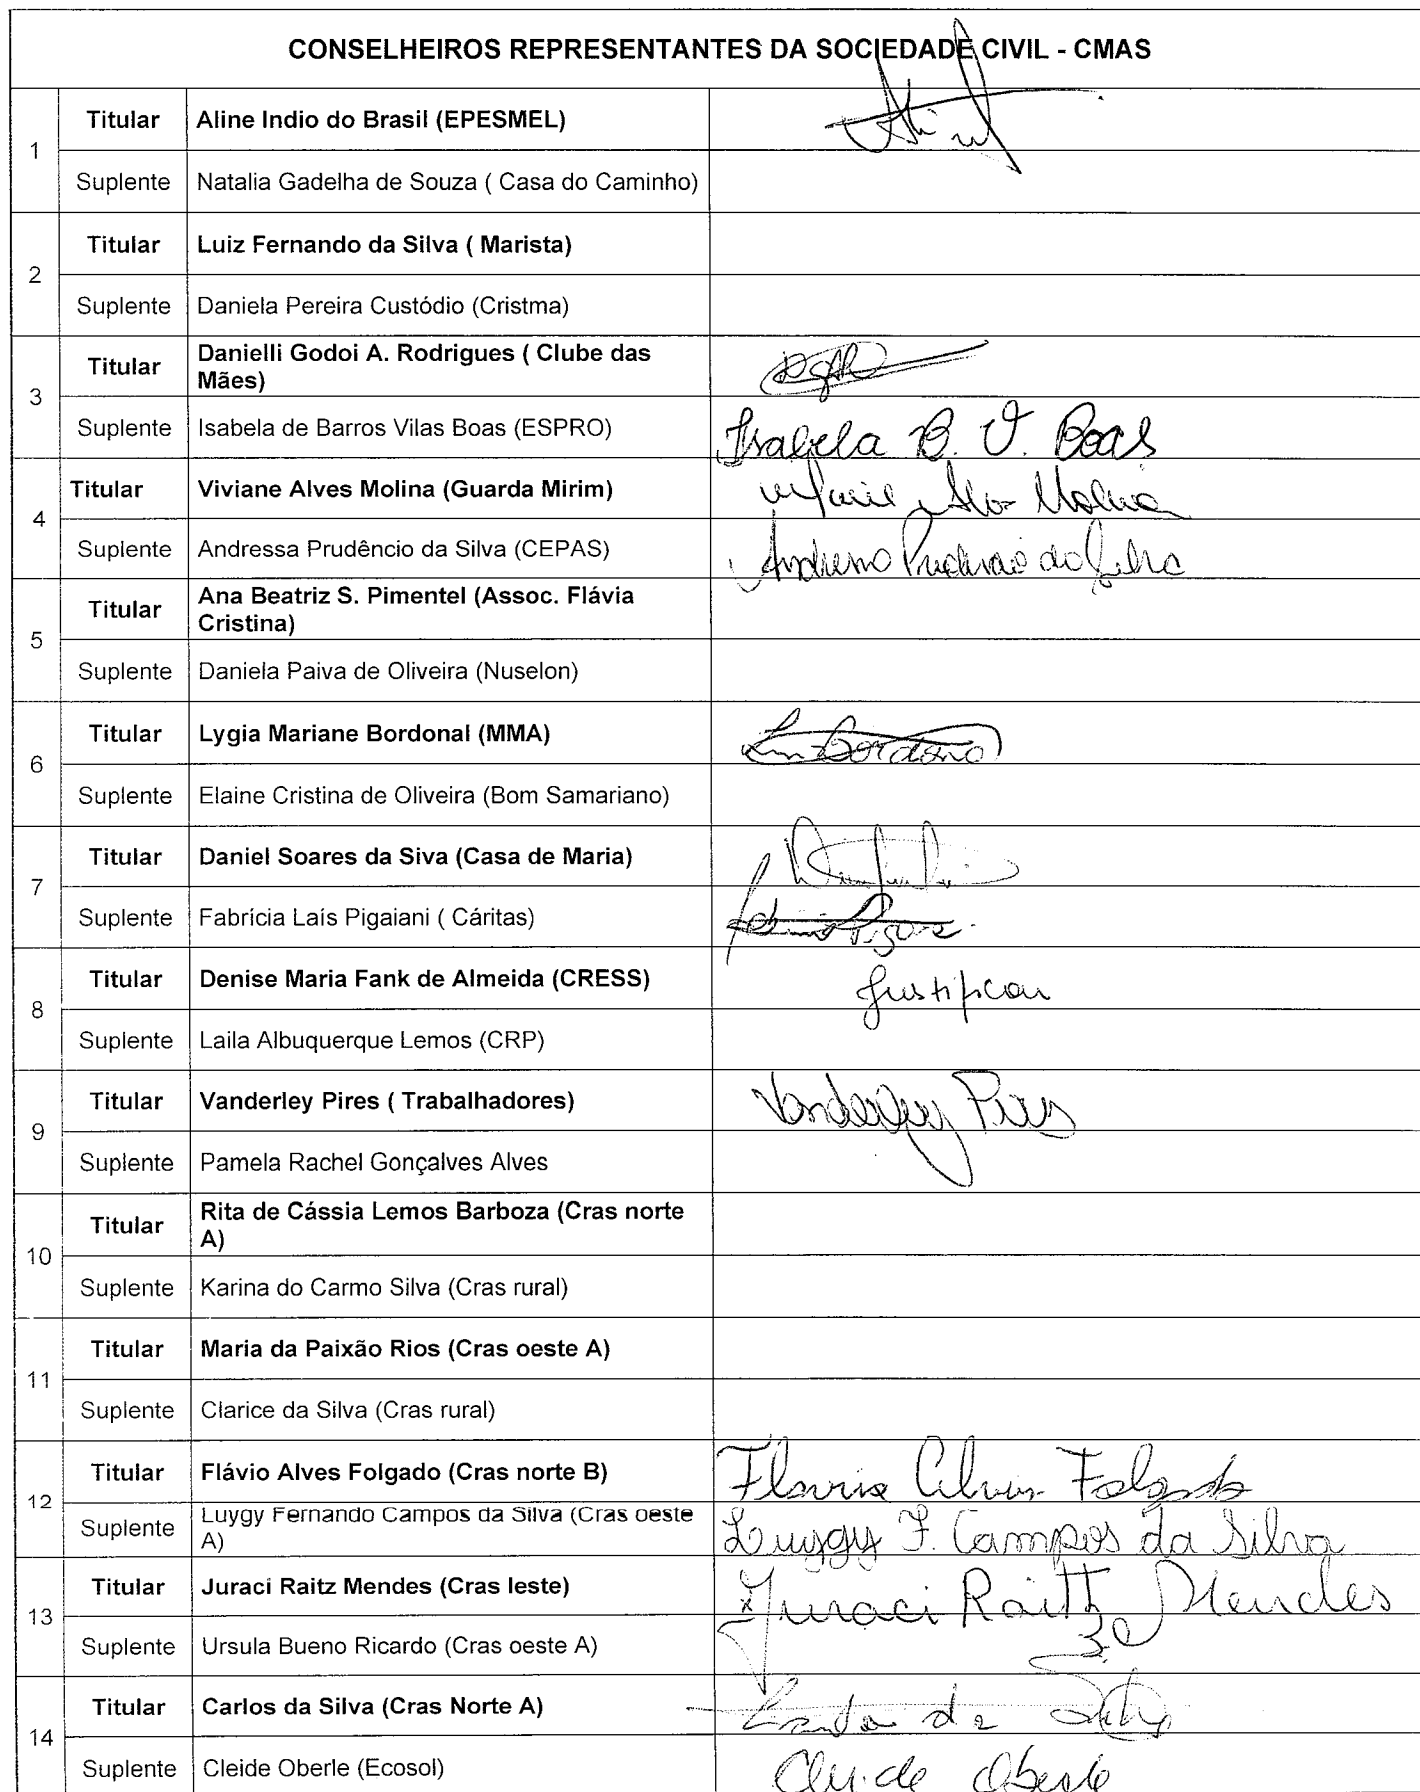 CONSELHEIROS REPRESENTANTES DA SOCIEDADE CIVIL - CMAS
1
Titular Aline Indio do Brasil (EPESMEL)
Suplente Natalia Gadelha de Souza ( Casa do Caminho)
2
Titular Luiz Fernando da Silva ( Marista)
Suplente Daniela Pereira Custódio (Cristma)
3
Titular Danielli Godoi A. Rodrigues ( Clube das
Mães)
Suplente Isabela de Barros Vilas Boas (ESPRO) Isabela B. V. Boas
4
Titular Viviane Alves Molina (Guarda Mirim) Alves Molina
Suplente Andressa Prudêncio da Silva (CEPAS) Andressa Prudencio da Silva
5
Titular Ana Beatriz S. Pimentel (Assoc. Flávia
Cristina)
Suplente Daniela Paiva de Oliveira (Nuselon)
6
Titular Lygia Mariane Bordonal (MMA)
Suplente Elaine Cristina de Oliveira (Bom Samariano)
7
Titular Daniel Soares da Siva (Casa de Maria)
Suplente Fabrícia Laís Pigaiani ( Cáritas)
8
Titular Denise Maria Fank de Almeida (CRESS) Justificou
Suplente Laila Albuquerque Lemos (CRP)
9
Titular Vanderley Pires ( Trabalhadores) Vanderley Pires
Suplente Pamela Rachel Gonçalves Alves
10
Titular Rita de Cássia Lemos Barboza (Cras norte
A)
Suplente Karina do Carmo Silva (Cras rural)
11
Titular Maria da Paixão Rios (Cras oeste A)
Suplente Clarice da Silva (Cras rural)
12
Titular Flávio Alves Folgado (Cras norte B) Flavio Alves Folgado
Suplente Luygy Fernando Campos da Silva (Cras oeste
A) Luygy F. Campos da Silva
13
Titular Juraci Raitz Mendes (Cras leste) x Juraci Raitz Mendes
Suplente Ursula Bueno Ricardo (Cras oeste A)
14
Titular Carlos da Silva (Cras Norte A) Carlos da Silva
Suplente Cleide Oberle (Ecosol) Cleide Oberle